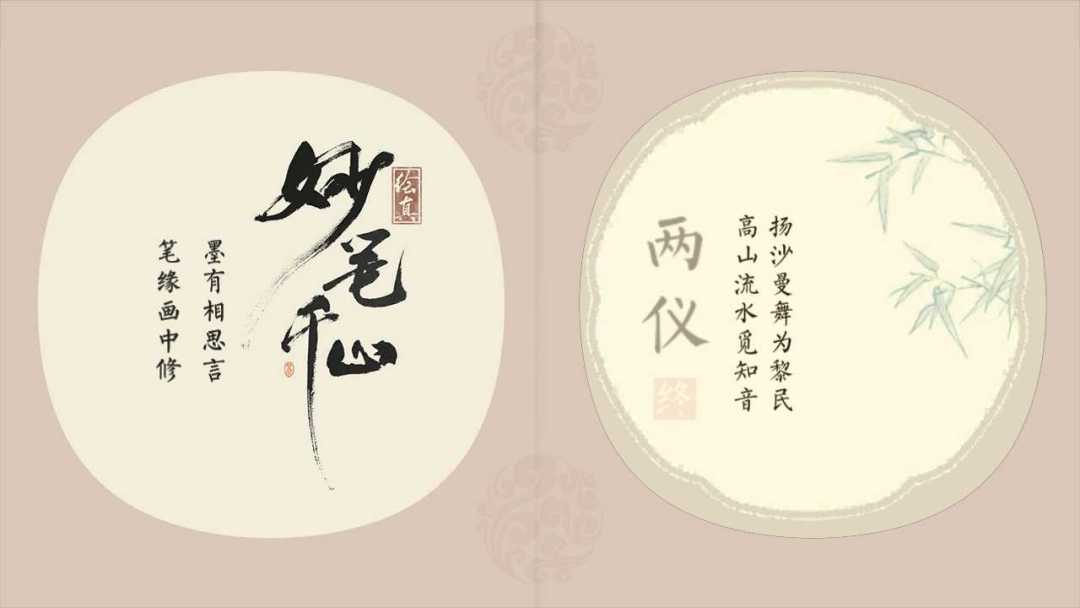 妙笔千山
绘真
墨有相思言
笔缘画中修
扬沙曼舞为黎民
高山流水觅知音
两仪
终